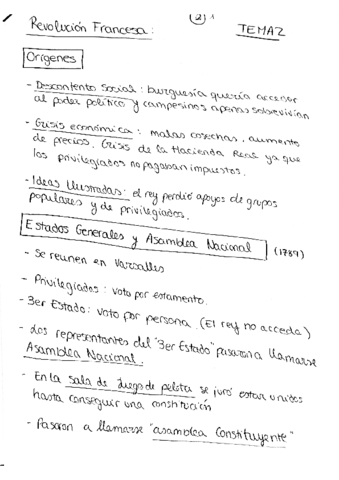 Revolución Francesa:
② 1
TEMA 2
Orígenes
- Descontento social: burguesía quería acceder
al poder político y campesinos apenas sobrevivían
- Crisis económica: malas cosechas, aumento
de precios. Crisis de la Hacienda Real ya que
los privilegiados no pagaban impuestos.
- Ideas Ilustradas: el rey perdió apoyos de grupos
populares y de privilegiados.
Estados Generales y Asamblea Nacional (1789)
- Se reunen en Versalles
- Privilegiados: voto por estamento.
- 3er Estado: voto por persona. (El rey no accede)
- Los representantes del "3er Estado" pasaron a llamarse
Asamblea Nacional.
- En la sala de Juego de pelota se juró estar unidos
hasta conseguir una constitución
- Pasaron a llamarse "asamblea Constituyente"